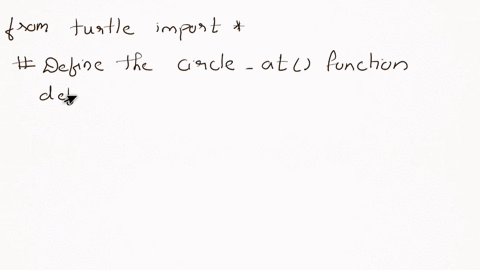 from turtle import *
# Define the circle_at() function
def